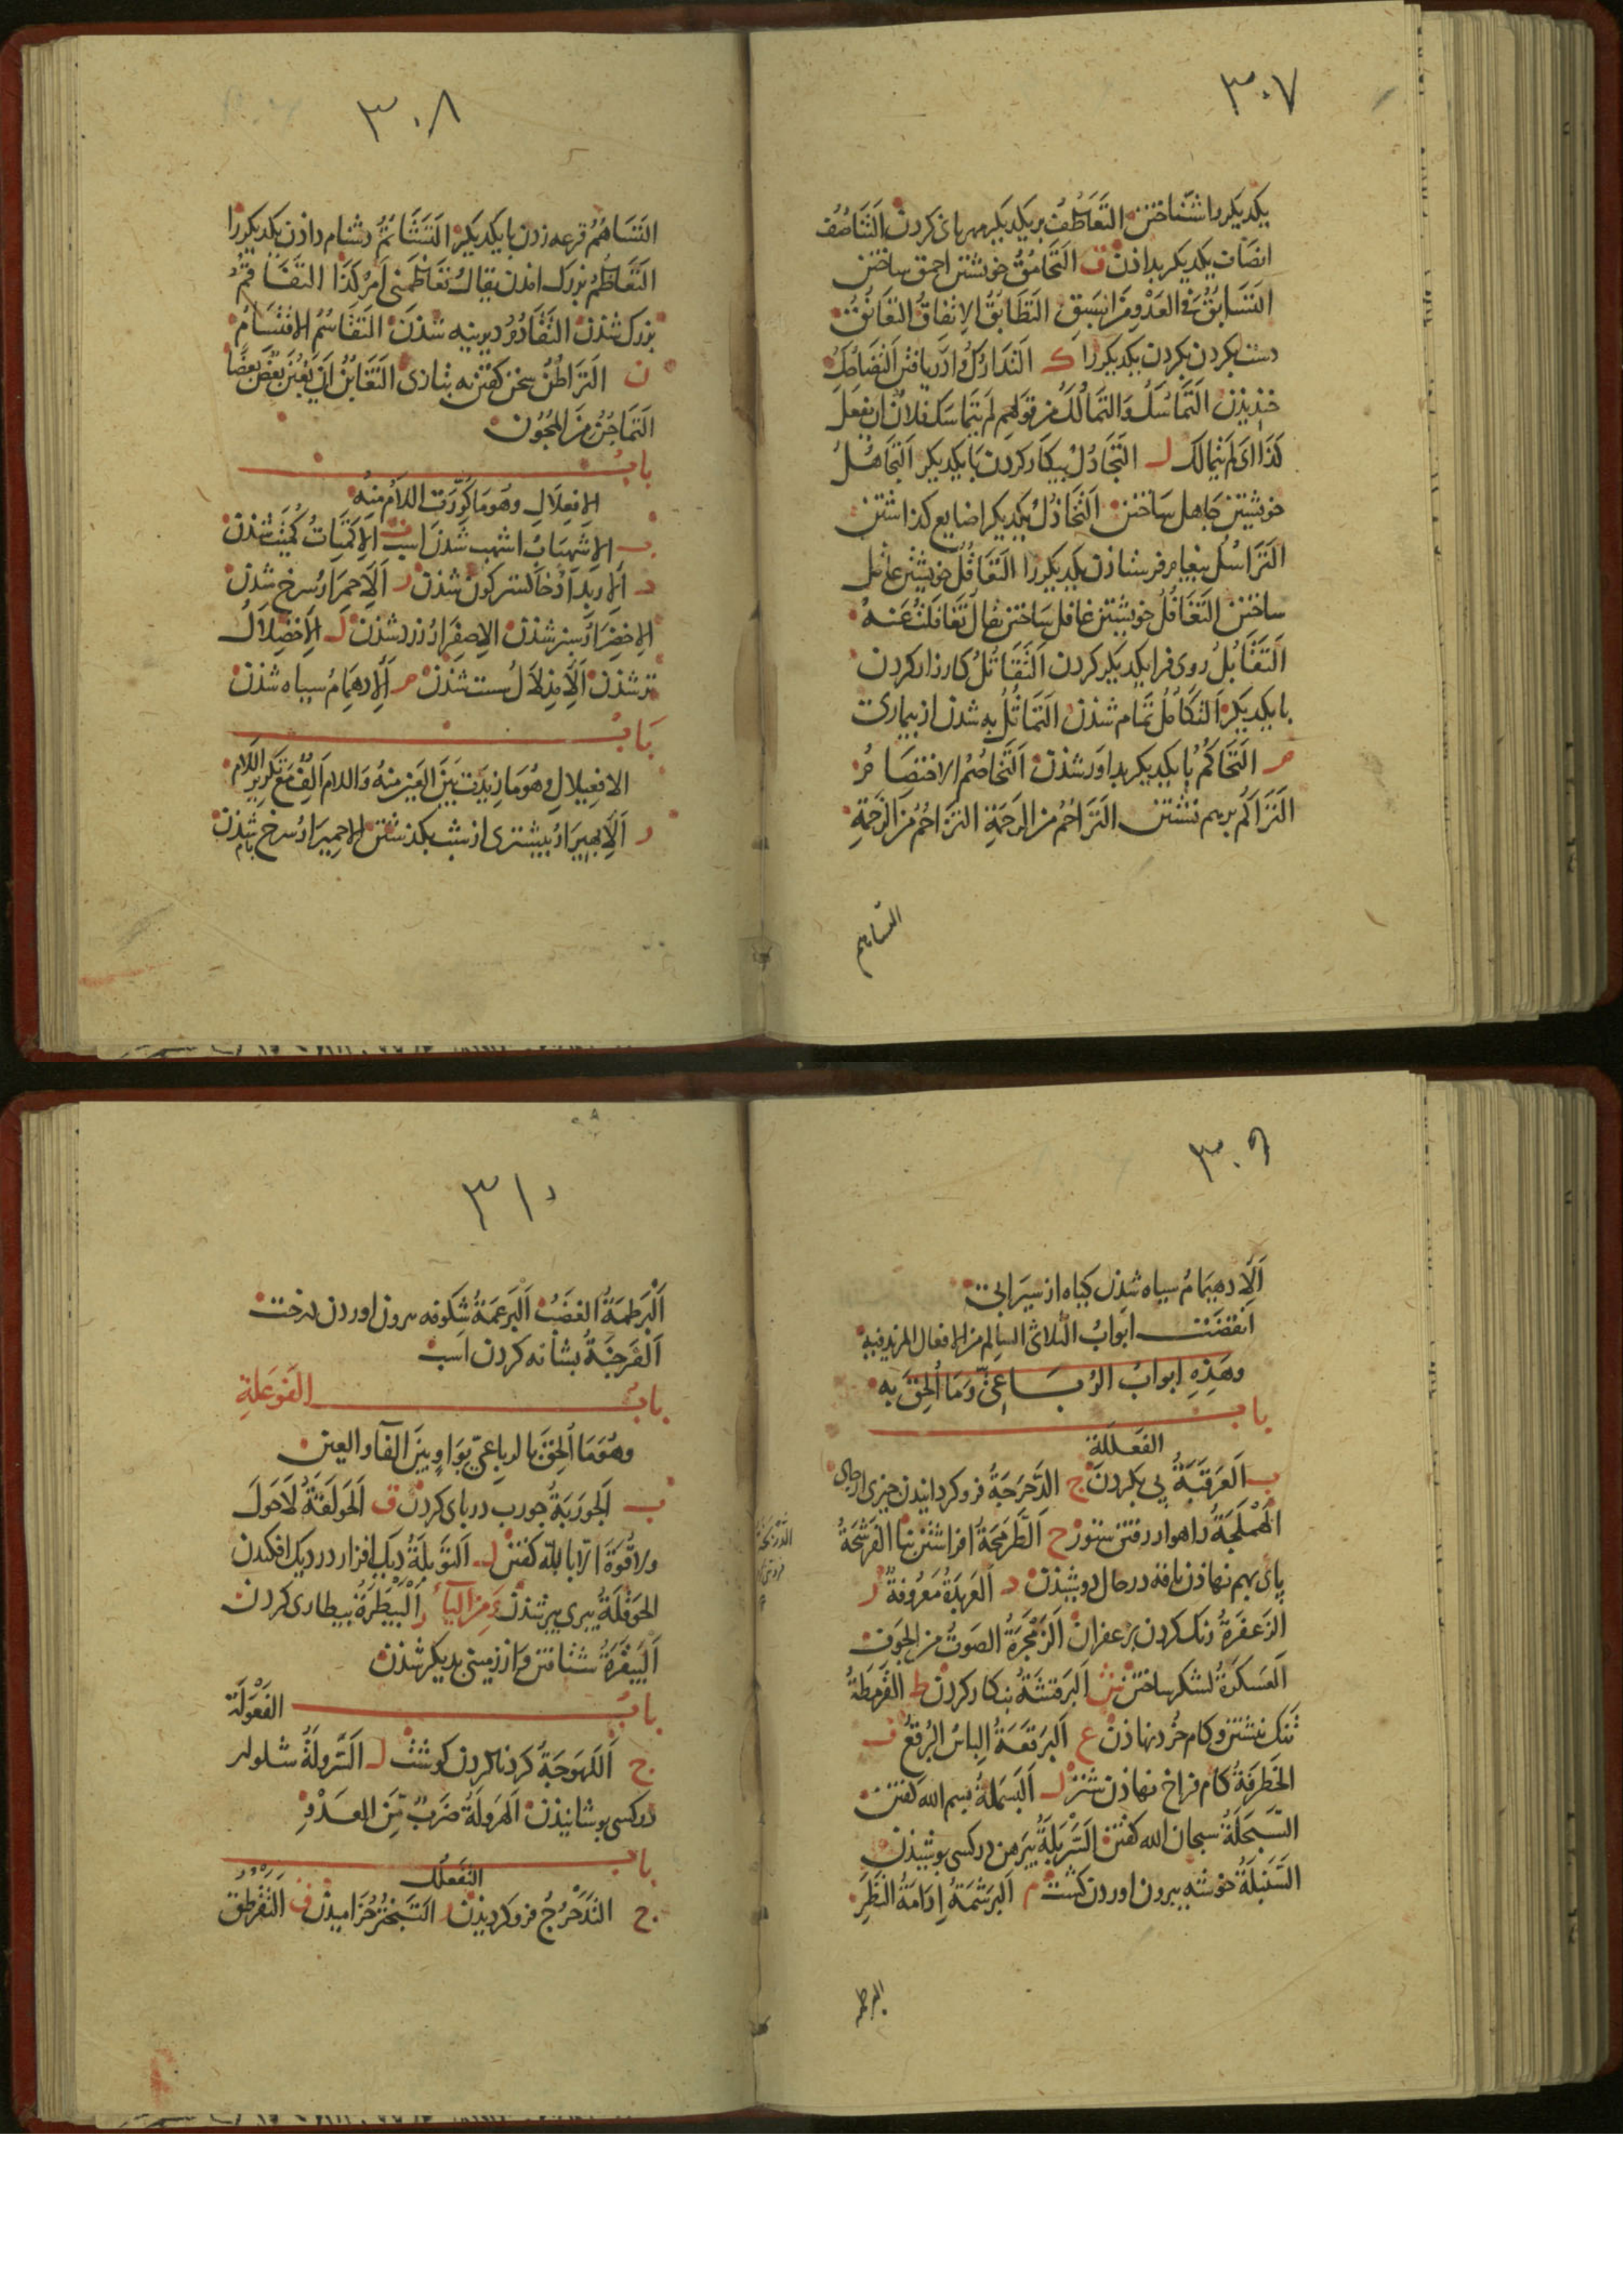 ٣٠٧
یکدیکررا شناختن التَّعَاطُفُ بر یکدیکر مهربانی کردن التَّنَاصُفُ
انصاف یکدیکر بداذن ق التَّحَامُقُ خویشتن احمق ساختن
التَّسَابُقُ فی العَدْوِ مِنَ السَبَقِ التَّطَابُقُ الاتفاقُ التعَانُقُ
دست بکردن یکدیکر را ک التَدَارُكُ دریافتن التَّضَاحُكُ
خندیذن التَّمَاسُكُ وَالتمَالُكُ من قولهم لم یتماسك فلان ان یفعل
کَذَا ای لم یتمالك ل التَّجَادُلُ بیکار کردن با یکدیکر التَّجَاهُلُ
خویشتن جاهل ساختن التَّخَاذُلُ یکدیکر ضایع کذاشتن
التَّرَاسُلُ بیغام فرستاذن یکدیکررا التَّعَاقُلُ خویشتن عاقل
ساختن التَّغَافُلُ خویشتن غافل ساختن یقال تَغَافَلْتُ عَنهُ
التَّقَابُلُ روی فرا یکدیکر کردن التَّقَاتُلُ کارزار کردن
با یکدیکر التکَامُلُ تمام شذن التَمَاثُلُ به شدن از بیماری
م التَحَاكُمُ با یکدیکر بداور شذن التَّخَاصُمُ الاختصامُ
التَرَاكُمُ برهم نشستن التَرَاحُمُ من الرَحمَةِ التزَاحُمُ من الزحمَةِ
التساهم
٣٠٨
التَسَاهُمُ قرعه زدن با یکدیکر التَشَاتُمُ دشنام داذن یکدیکررا
التَعَاظُمُ بزرك امدن یقال تَعَاظَمَنی اَمرُ کَذَا التفَاقُمُ
بزرك شذن التَّقَادُمُ دیرینه شذن التقَاسُمُ الاقتسَامُ
ن التَرَاطُنُ سخن کفتن به بتازی التَغَابُنُ ان یَغبُنَ بَعْضٌ بَعضًا
التَمَاجُنُ مِنَ المجُون
بابُ
الافعِلَالِ وهُوَ مَا کُرِّرَت اللامُ منِهُ
ب الاِشهبَابُ اشهب شذن اسب ت الاِكمتَاتُ کُمَیت شذن
د اَلاربدَادُ خاکستر کون شذن ر اَلاِحمرَارُ سرخ شذن
الاخضرَارُ سبز شذن الاِصفِرَارُ زرد شذن ل الاخضِلَالُ
تر شذن اَلاِبذِلَالُ سست شذن م اَلاِدهِمَامُ سیاه شذن
بَابُ
الافعِیلالِ وهُوَ مَا زیدَت بَینَ العَینِ منِهُ وَاللام اَلِفٌ مَعَ تَکریرِ اللام
ر اَلابهیرَارُ بیشتری از شب بکذشتن الاحمیرَارُ سرخ شذن
٣٠٩
اَلاِدهیمَامُ سیاه شذن کیاه از سیرابی
انقضَت ابوابُ الثلاثی السالم من الافعال المزید فیه
وهَذِهِ ابوابُ الرُّبَاعِیِّ وَمَا اُلحِقَ بِه
بابُ
الفَعلَلَة
ب العَرقَبَةُ پی بکردن ج الدَحرَجَةُ فرو کردانیدن چیزی از جای
الهَمْلَجَةُ راهوار رفتن ستور ح الطَّرمَحَةُ افراشتن بنا الفَرشَحَةُ
پای بهم نهاذن ناقه در حال دوشیذن د العَربَدَةُ مَعرُوفَةٌ ر
الزَعفَرَةُ رنك کردن بزعفران الزَمْجَرَةُ الصَوتُ من الجَوف
العَسکَرَةُ لشکر ساختن ش اَلبرقشَةُ نکار کردن ط القَرمَطَةُ
تَنك نبشتن و کام خُرد نهاذن ع اَلبَرقَعَةُ اِلباسُ البُرقُع ف
الخَطرَفَةُ کام فراخ نهاذن شتر ل البَسمَلةُ بسم الله کفتن
السَّبحَلَةُ سبحان الله کفتن السَّرْبَلَةُ بیرَهن در کسی بوشیذن
السَّنبَلَةُ خوشه بیرون اوردن کشت م اَلبَرشَمَةُ اِدَامَةُ النَّظَر
البرطمه
٣١٠
اَلْبَرطَمَةُ الغضَبُ اَلبَرعَمَةُ شکوفه بیرون اوردن درخت
اَلفَرجَنَةُ بشانه کردن اسب
بابُ الفَوعَلةِ
وهُوَ مَا اُلحِقَ بالرباعیّ بوَاوٍ بینَ الفَآ والعین
ب اَلجَورَبَةُ جورب در پای کردن ق اَلحَولَقَةُ لَاحَولَ
ولا قُوَّةَ الّا بالله کفتن ل اَلتَوبَلَةُ دیك افزار در دیك افکندن
الحَوقَلَةُ پیری پیر شذن وَمِنَ الیآءِ ر اَلْبَیْطَرَةُ بیطاری کردن
اَلبَیقَرَةُ شتافتن و از زمینی بدیکر شذن
بابُ الفَعْوَلَة
ج اَللَهوَجَةُ کردنا کردن کوشت ل اَلسَّروَلَةُ شلوار
در کسی بوشانیذن اَلهَروَلَةُ ضَربٌ مِنَ العَدْوِ
بابُ
التَّفَعلُل
ج التَدَحْرُجُ فرو کردیذن ر التَبَختُرُ خرامیذن ق التَّقَرطُقُ